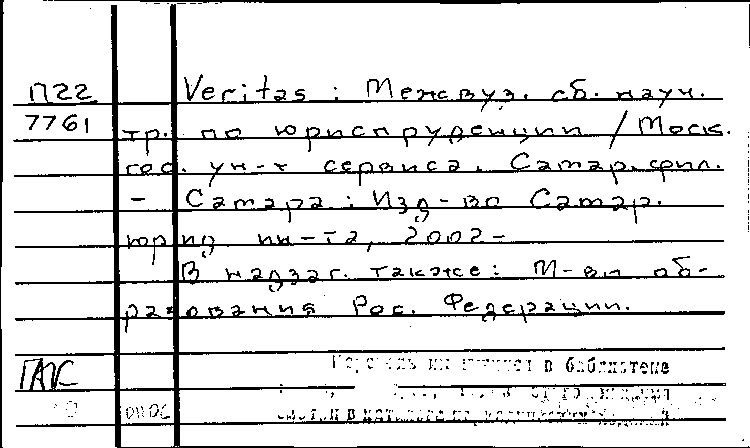 П22 Veritas : Межвуз. сб. науч.
7761 тр. по юриспруденции / Моск.
гос. ун-т сервиса. Самар. фил.
- Самара : Изд-во Самар.
юрид. ин-та, 2002-
В надзаг. также: М-во об-
разования Рос. Федерации.
в библиотеке